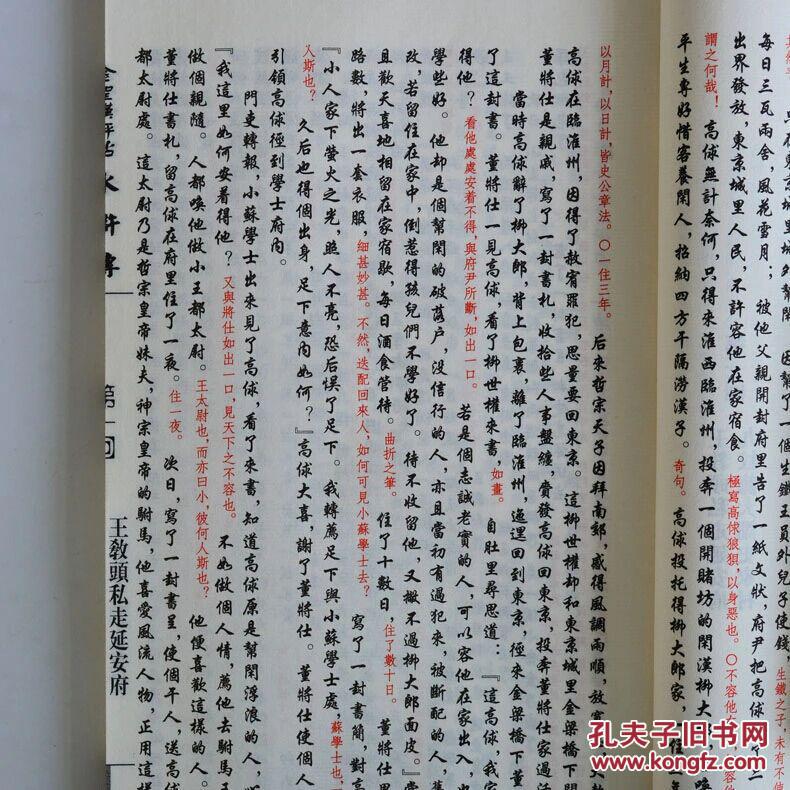 只在東京城里城外幫閑。因幫了一個生鐵王員外兒子使錢，生鐵之子，未有不使
每日三瓦兩舍，風花雪月；被他父親開封府里告了一紙文狀，府尹把高俅
出界發放，東京城里人民，不許容他在家宿食。極寫高俅狼狽，以身惡也。〇不容他在
謂之何哉！高俅無計奈何，只得來淮西臨淮州，投奔一個開賭坊的閑漢柳大郎，
平生專好惜客養閑人，招納四方干隔澇漢子。奇句。高俅投托得柳大郎家，一住三年
以月計，以日計，皆史公章法。〇一住三年。后來哲宗天子因拜南郊，感得風調雨順，放寬
高俅在臨淮州，因得了赦宥罪犯，思量要回東京。這柳世權却和東京城里金梁橋下開
董將仕是親戚，寫了一封書札，收拾些人事盤纏，賫發高俅回東京，投奔董將仕家過活
當時高俅辭了柳大郎，背上包裹，離了臨淮州，迤邐回到東京，徑來金梁橋下董
了這封書。董將仕一見高俅，看了柳世權來書，如畫。自肚里尋思道：『這高俅，我家
得他？看他處處安着不得，與府尹所斷，如出一口。若是個志誠老實的人，可以容他在家出入，
學些好。他却是個幫閑的破落户，没信行的人，亦且當初有過犯來，被斷配的人，舊
改，若留住在家中，倒惹得孩兒們不學好了。待不收留他，又撇不過柳大郎面皮。』當
且歡天喜地相留在家宿歇，每日酒食管待。曲折之筆。住了十數日，住了數十日。董將仕
路數，將出一套衣服，細甚妙甚。不然，迭配回來人，如何可見小蘇學士去？寫了一封書簡，對高
『小人家下螢火之光，照人不亮，恐后悞了足下。我轉薦足下與小蘇學士處，蘇學士也，
入斯也？久后也得個出身，足下意內如何？』高俅大喜，謝了董將仕。董將仕使個人
引領高俅徑到學士府内。
門吏轉報，小蘇學士出來見了高俅，看了來書，知道高俅原是幫閑浮浪的人，心
『我這里如何安着得他？又與將仕如出一口，見天下之不容也。不如做個人情，薦他去駙馬王
做個親隨。人都喚他做小王都太尉。王太尉也，而亦曰小，彼何人斯也？他便喜歡這樣的人。
董將仕書札，留高俅在府里住了一夜。住一夜。次日，寫了一封書呈，使個干人，送高俅
都太尉處。這太尉乃是哲宗皇帝妹夫，神宗皇帝的駙馬，他喜愛風流人物，正用這樣
金聖嘆評點水滸傳
第一回
王教頭私走延安府
孔夫子旧书网
www.kongfz.com